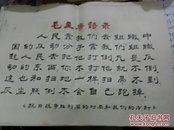 毛主席语录
人民靠我们去组织。中
国的反动分子，靠我们组织起
人民去把他打倒。凡是反
动的东西，你不打，他就不倒。
这也和扫地一样，扫帚不到，
灰尘照例不会自己跑掉。
《抗日战争胜利后的时局和我们的方针》